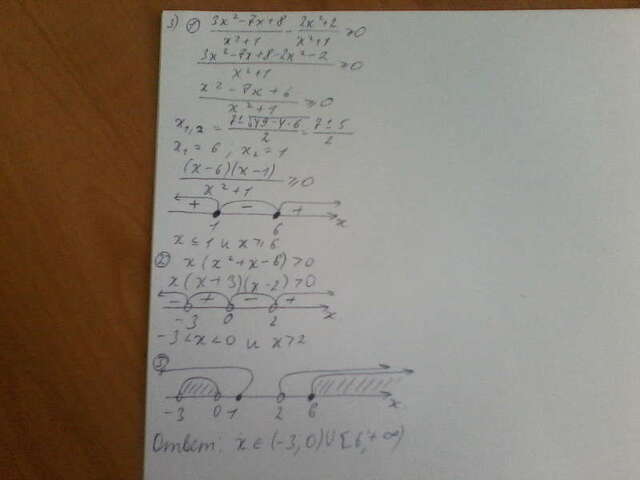 3) ① (3x²-7x+8)/(x²+1) - (2x²+2)/(x²+1) ≥0
(3x²-7x+8-2x²-2)/(x²+1) ≥0
(x²-7x+6)/(x²+1) ≥0
x₁,₂ = (7±√49-4·6)/2 = (7±5)/2
x₁=6; x₂=1
(x-6)(x-1)/(x²+1) ≥0
+ - +
1 6 x
x≤1 и x≥6
② x(x²+x-6)>0
x(x+3)(x-2)>0
- + - +
-3 0 2 x
-3<x<0 и x>2
③
-3 0 1 2 6 x
Ответ: x∈(-3,0)∪[6,+∞)